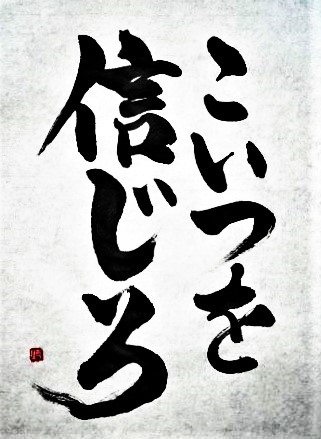 こいつを
信じろ